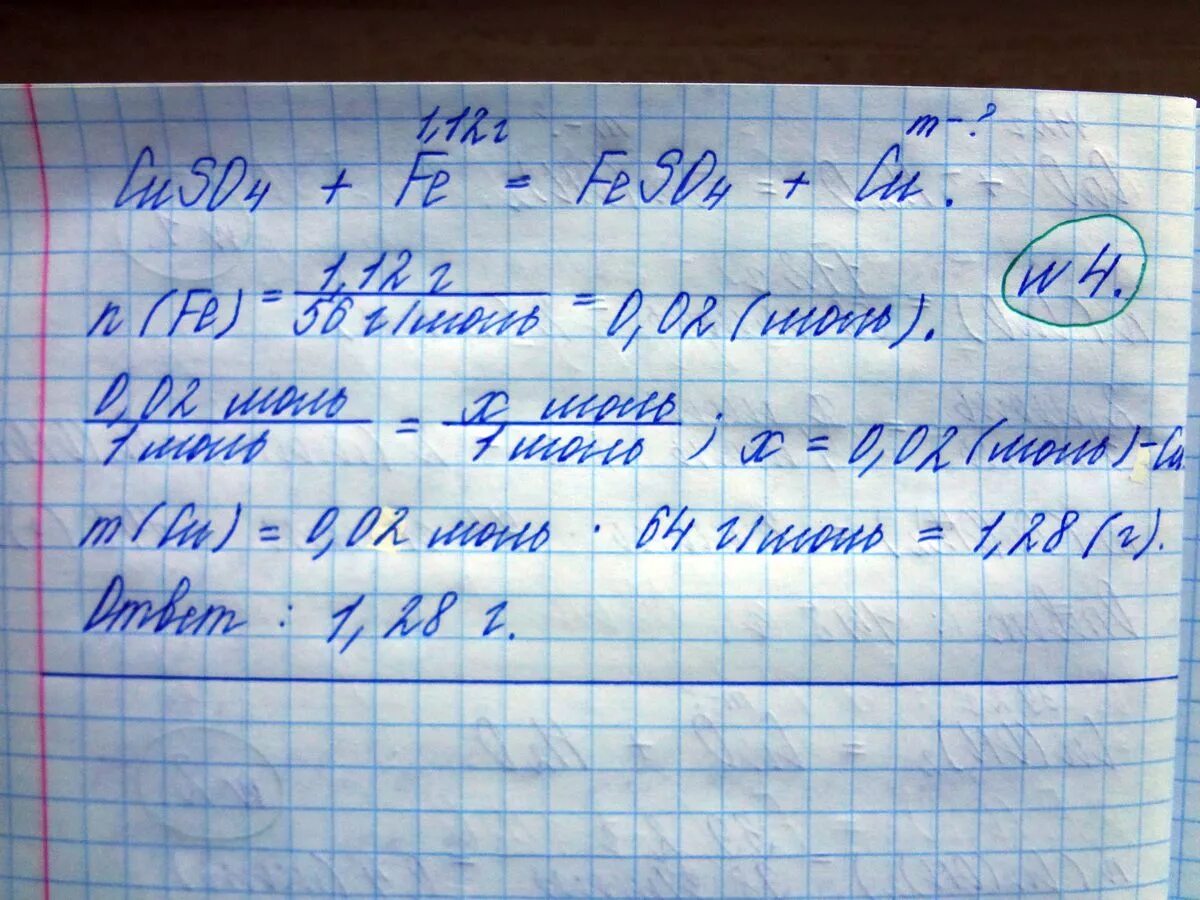 1,12г m-?
CuSO4 + Fe = FeSO4 + Cu.
N4.
n(Fe) = 1,12 г / 56 г/моль = 0,02 (моль).
0,02 моль / 1 моль = x моль / 1 моль ; x = 0,02 (моль) - Cu
m(Cu) = 0,02 моль · 64 г/моль = 1,28 (г).
Ответ : 1,28 г.